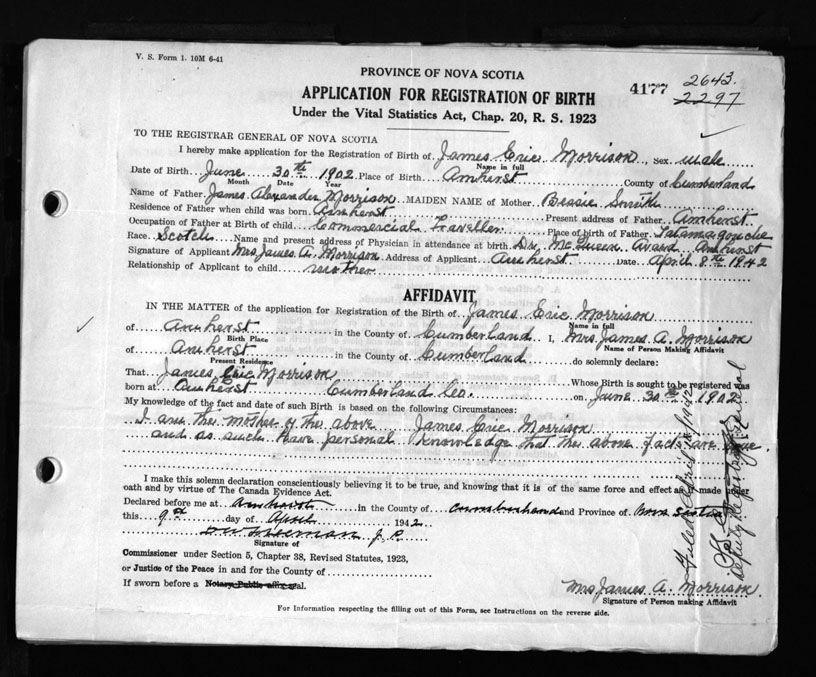 V. S. Form 1. 10M 6-41
PROVINCE OF NOVA SCOTIA
4177 2643.
APPLICATION FOR REGISTRATION OF BIRTH 2297
Under the Vital Statistics Act, Chap. 20, R. S. 1923
TO THE REGISTRAR GENERAL OF NOVA SCOTIA
I hereby make application for the Registration of Birth of James Eric Morrison, Sex male
Name in full
Date of Birth June 30th 1902 Place of Birth Amherst County of Cumberland
Month Date Year
Name of Father James Alexander Morrison MAIDEN NAME of Mother Bessie Smith
Residence of Father when child was born Amherst Present address of Father Amherst
Occupation of Father at Birth of child Commercial Traveller Place of birth of Father Tatamagouche
Race Scotch Name and present address of Physician in attendance at birth Dr. McQueen Amherst
Signature of Applicant Mrs James A. Morrison Address of Applicant Amherst Date April 8th 1942
Relationship of Applicant to child mother
AFFIDAVIT
IN THE MATTER of the application for Registration of the Birth of James Eric Morrison
Name in full
of Amherst in the County of Cumberland I, Mrs James A. Morrison
Birth Place Name of Person Making Affidavit
of Amherst in the County of Cumberland do solemnly declare:
Present Residence
That James Eric Morrison Whose Birth is sought to be registered was
born at Amherst Cumberland Co. on June 30th 1902
My knowledge of the fact and date of such Birth is based on the following Circumstances:
I am the mother of the above James Eric Morrison
and as such have personal knowledge that the above facts are true.
I make this solemn declaration conscientiously believing it to be true, and knowing that it is of the same force and effect as if made under
oath and by virtue of The Canada Evidence Act.
Declared before me at Amherst in the County of Cumberland and Province of Nova Scotia
this 9th day of April 1942
J. P.
Signature of
Commissioner under Section 5, Chapter 38, Revised Statutes, 1923,
or Justice of the Peace in and for the County of
If sworn before a Notary Public affix seal.
Mrs James A. Morrison
Signature of Person making Affidavit
For Information respecting the filling out of this Form, see Instructions on the reverse side.
Filed April 1942
Deputy Registrar General